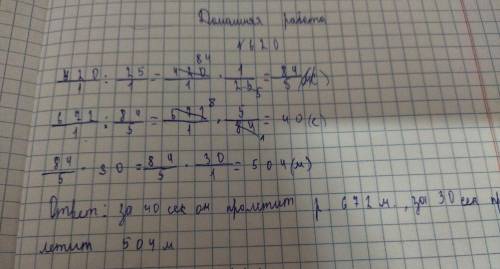 Домашняя работа
№620
420/1 : 25/1 = 420/1 84 · 1/25 5 = 84/5 (м)
672/1 : 84/5 = 672/1 8 · 5/84 1 = 40 (с)
84/5 · 30 = 84/5 · 30/1 = 504 (м)
Ответ: за 40 сек он пролетит 672 м., за 30 сек
летит 504 м